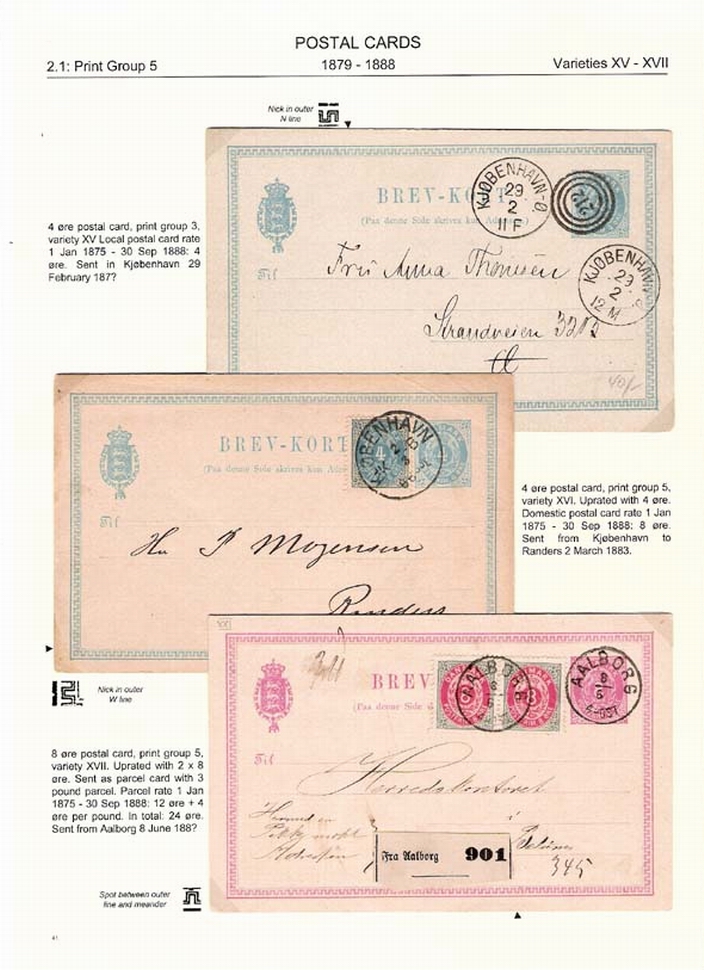 POSTAL CARDS
2.1: Print Group 5
1879 - 1888
Varieties XV - XVII
Nick in outer
N line
4 øre postal card, print group 3,
variety XV Local postal card rate
1 Jan 1875 - 30 Sep 1888: 4
øre. Sent in Kjøbenhavn 29
February 187?
BREV-KORT
(Paa denne Side skrives kun
Til
KJØBENHAVN-Ø
29
2
11 F
212
KJØBENHAVN
29
2
12 M
Frk Anna Thomsen
Strandveien
40/-
BREV-KORT
(Paa denne Side skrives kun
Til
4
KJØBENHAVN
Hr P Mogensen
Randers
4 øre postal card, print group 5,
variety XVI. Uprated with 4 øre.
Domestic postal card rate 1 Jan
1875 - 30 Sep 1888: 8 øre.
Sent from Kjøbenhavn to
Randers 2 March 1883.
Nick in outer
W line
8 øre postal card, print group 5,
variety XVII. Uprated with 2 x 8
øre. Sent as parcel card with 3
pound parcel. Parcel rate 1 Jan
1875 - 30 Sep 1888: 12 øre + 4
øre per pound. In total: 24 øre.
Sent from Aalborg 8 June 188?
BREV
(Paa denne Side
Til
8
AALBORG
8
6
AALBORG
8
6
Herredskontoret
i
Fra Aalborg 901
345
Spot between outer
line and meander
41